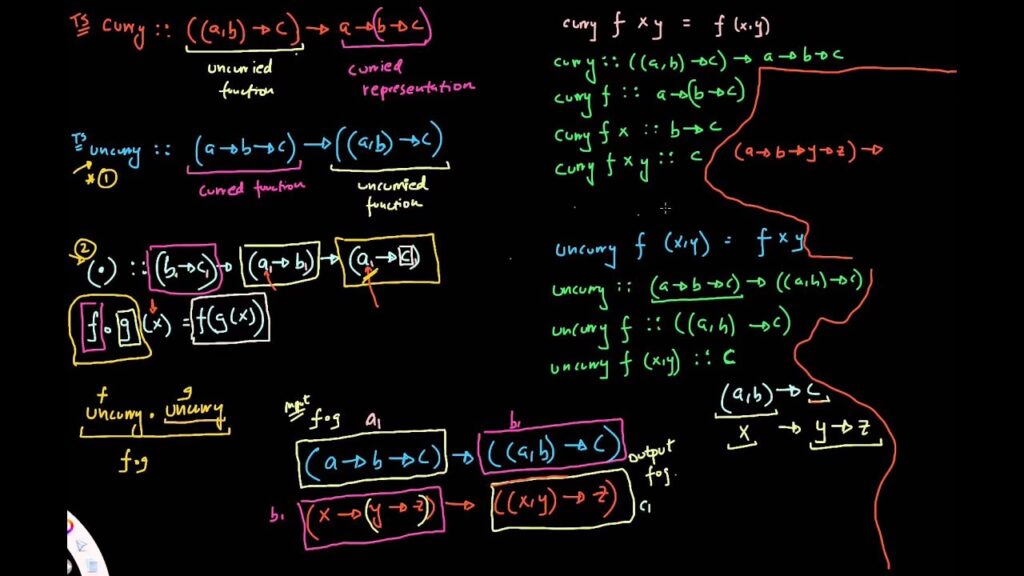 TS curry :: ((a,b) → c) → a → (b → c)
uncurried function
curried representation
TS uncurry :: (a → b → c) → ((a,b) → c)
* ①
curried function
uncurried function
② (.) :: (b₁ → c₁) → (a₁ → b₁) → (a₁ → c₁)
f ∘ g (x) = f(g(x))
f g
uncurry . uncurry
fog
input fog a₁ b₁
(a → b → c) → ((a,b) → c)
output fog.
b₁ (x → (y → z)) → ((x,y) → z) c₁
curry f x y = f (x,y)
curry :: ((a,b) → c) → a → b → c
curry f :: a → (b → c)
curry f x :: b → c
curry f x y :: c
(a → b → y → z) →
uncurry f (x,y) = f x y
uncurry :: (a → b → c) → ((a,b) → c)
uncurry f :: ((a,b) → c)
uncurry f (x,y) :: c
(a,b) → c
x → y → z